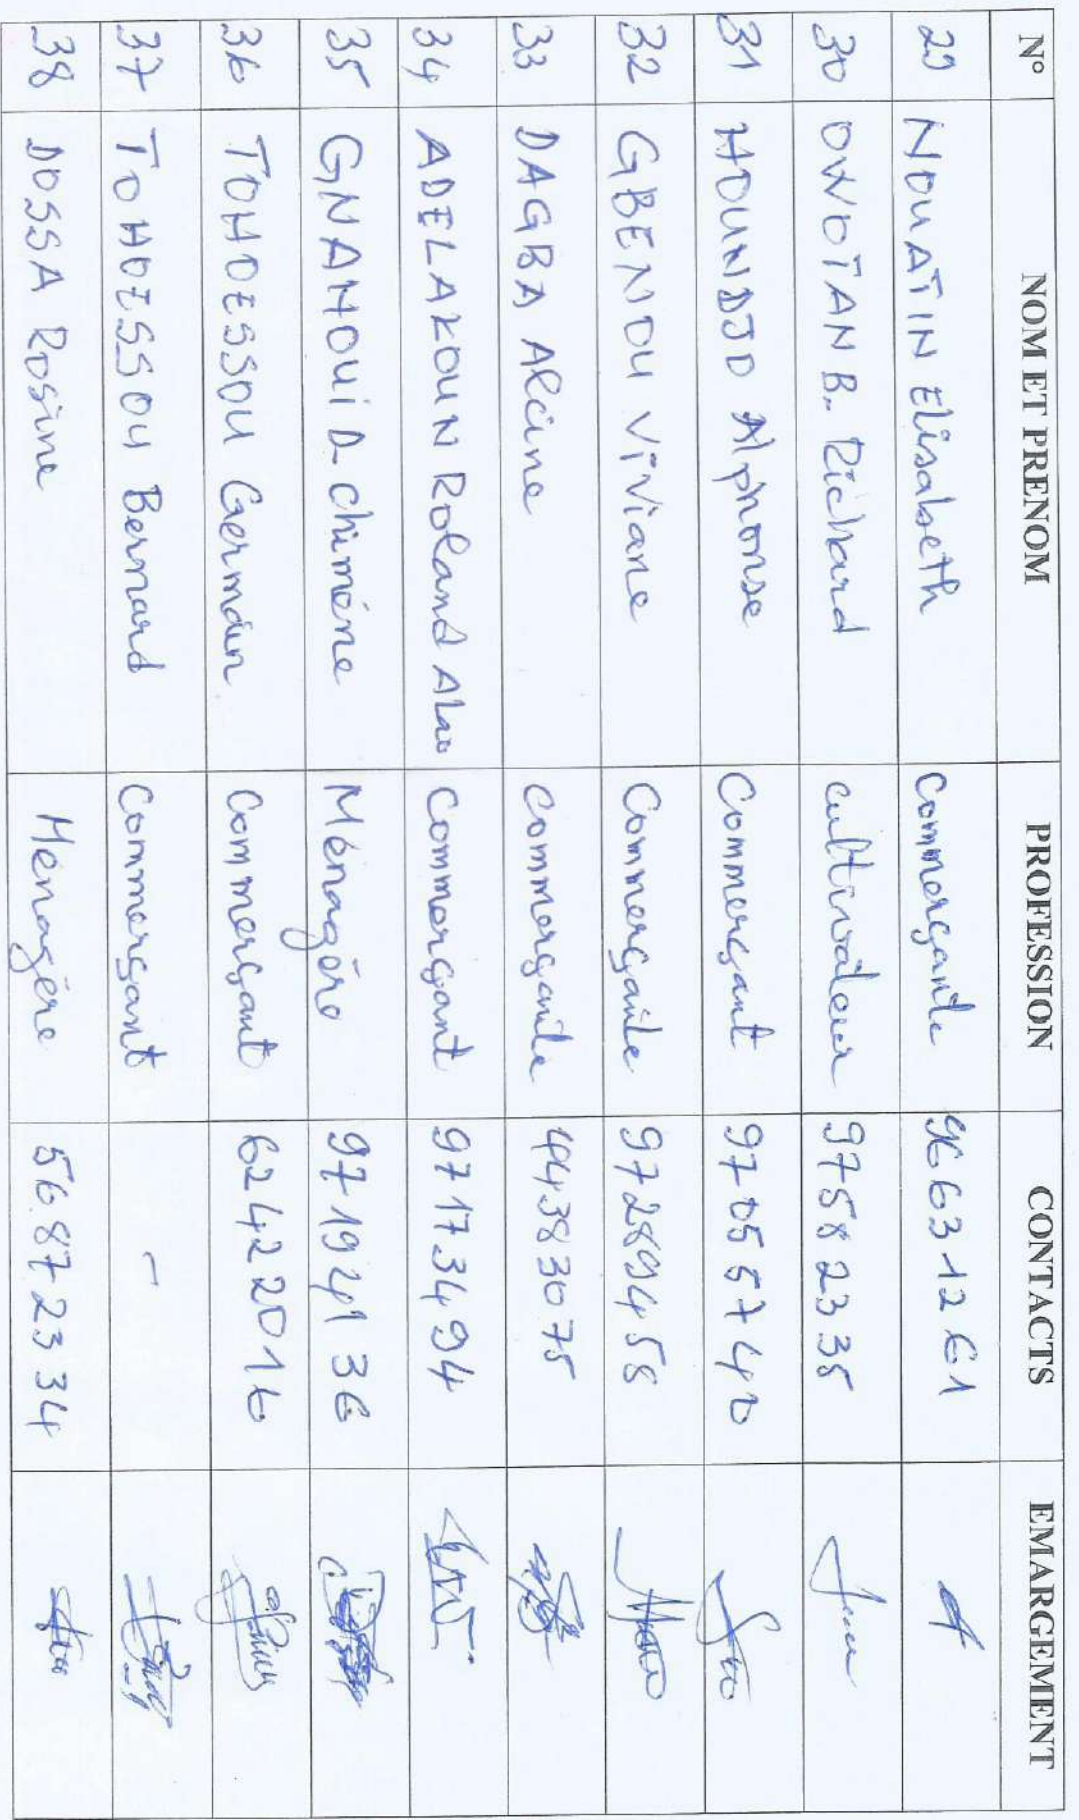 N° NOM ET PRENOM PROFESSION CONTACTS EMARGEMENT
29 NOUATIN Elisabeth Commerçante 96631261
30 OWOTAN B. Richard cultivateur 97582335
31 HOUNDJO Alphonse Commerçant 97055740
32 GBENOU Viviane Commerçante 97289458
33 DAGBA Alcine Commerçante 44383075
34 ADELAKOUN Roland Commerçant 97173494
35 GNAHOUI D. Chimène Ménagère 97194136
36 TOHOESSOU Germain Commerçant 62422016
37 TOHOESSOU Bernard Commerçant -
38 DOSSA Rosine Ménagère 56872334